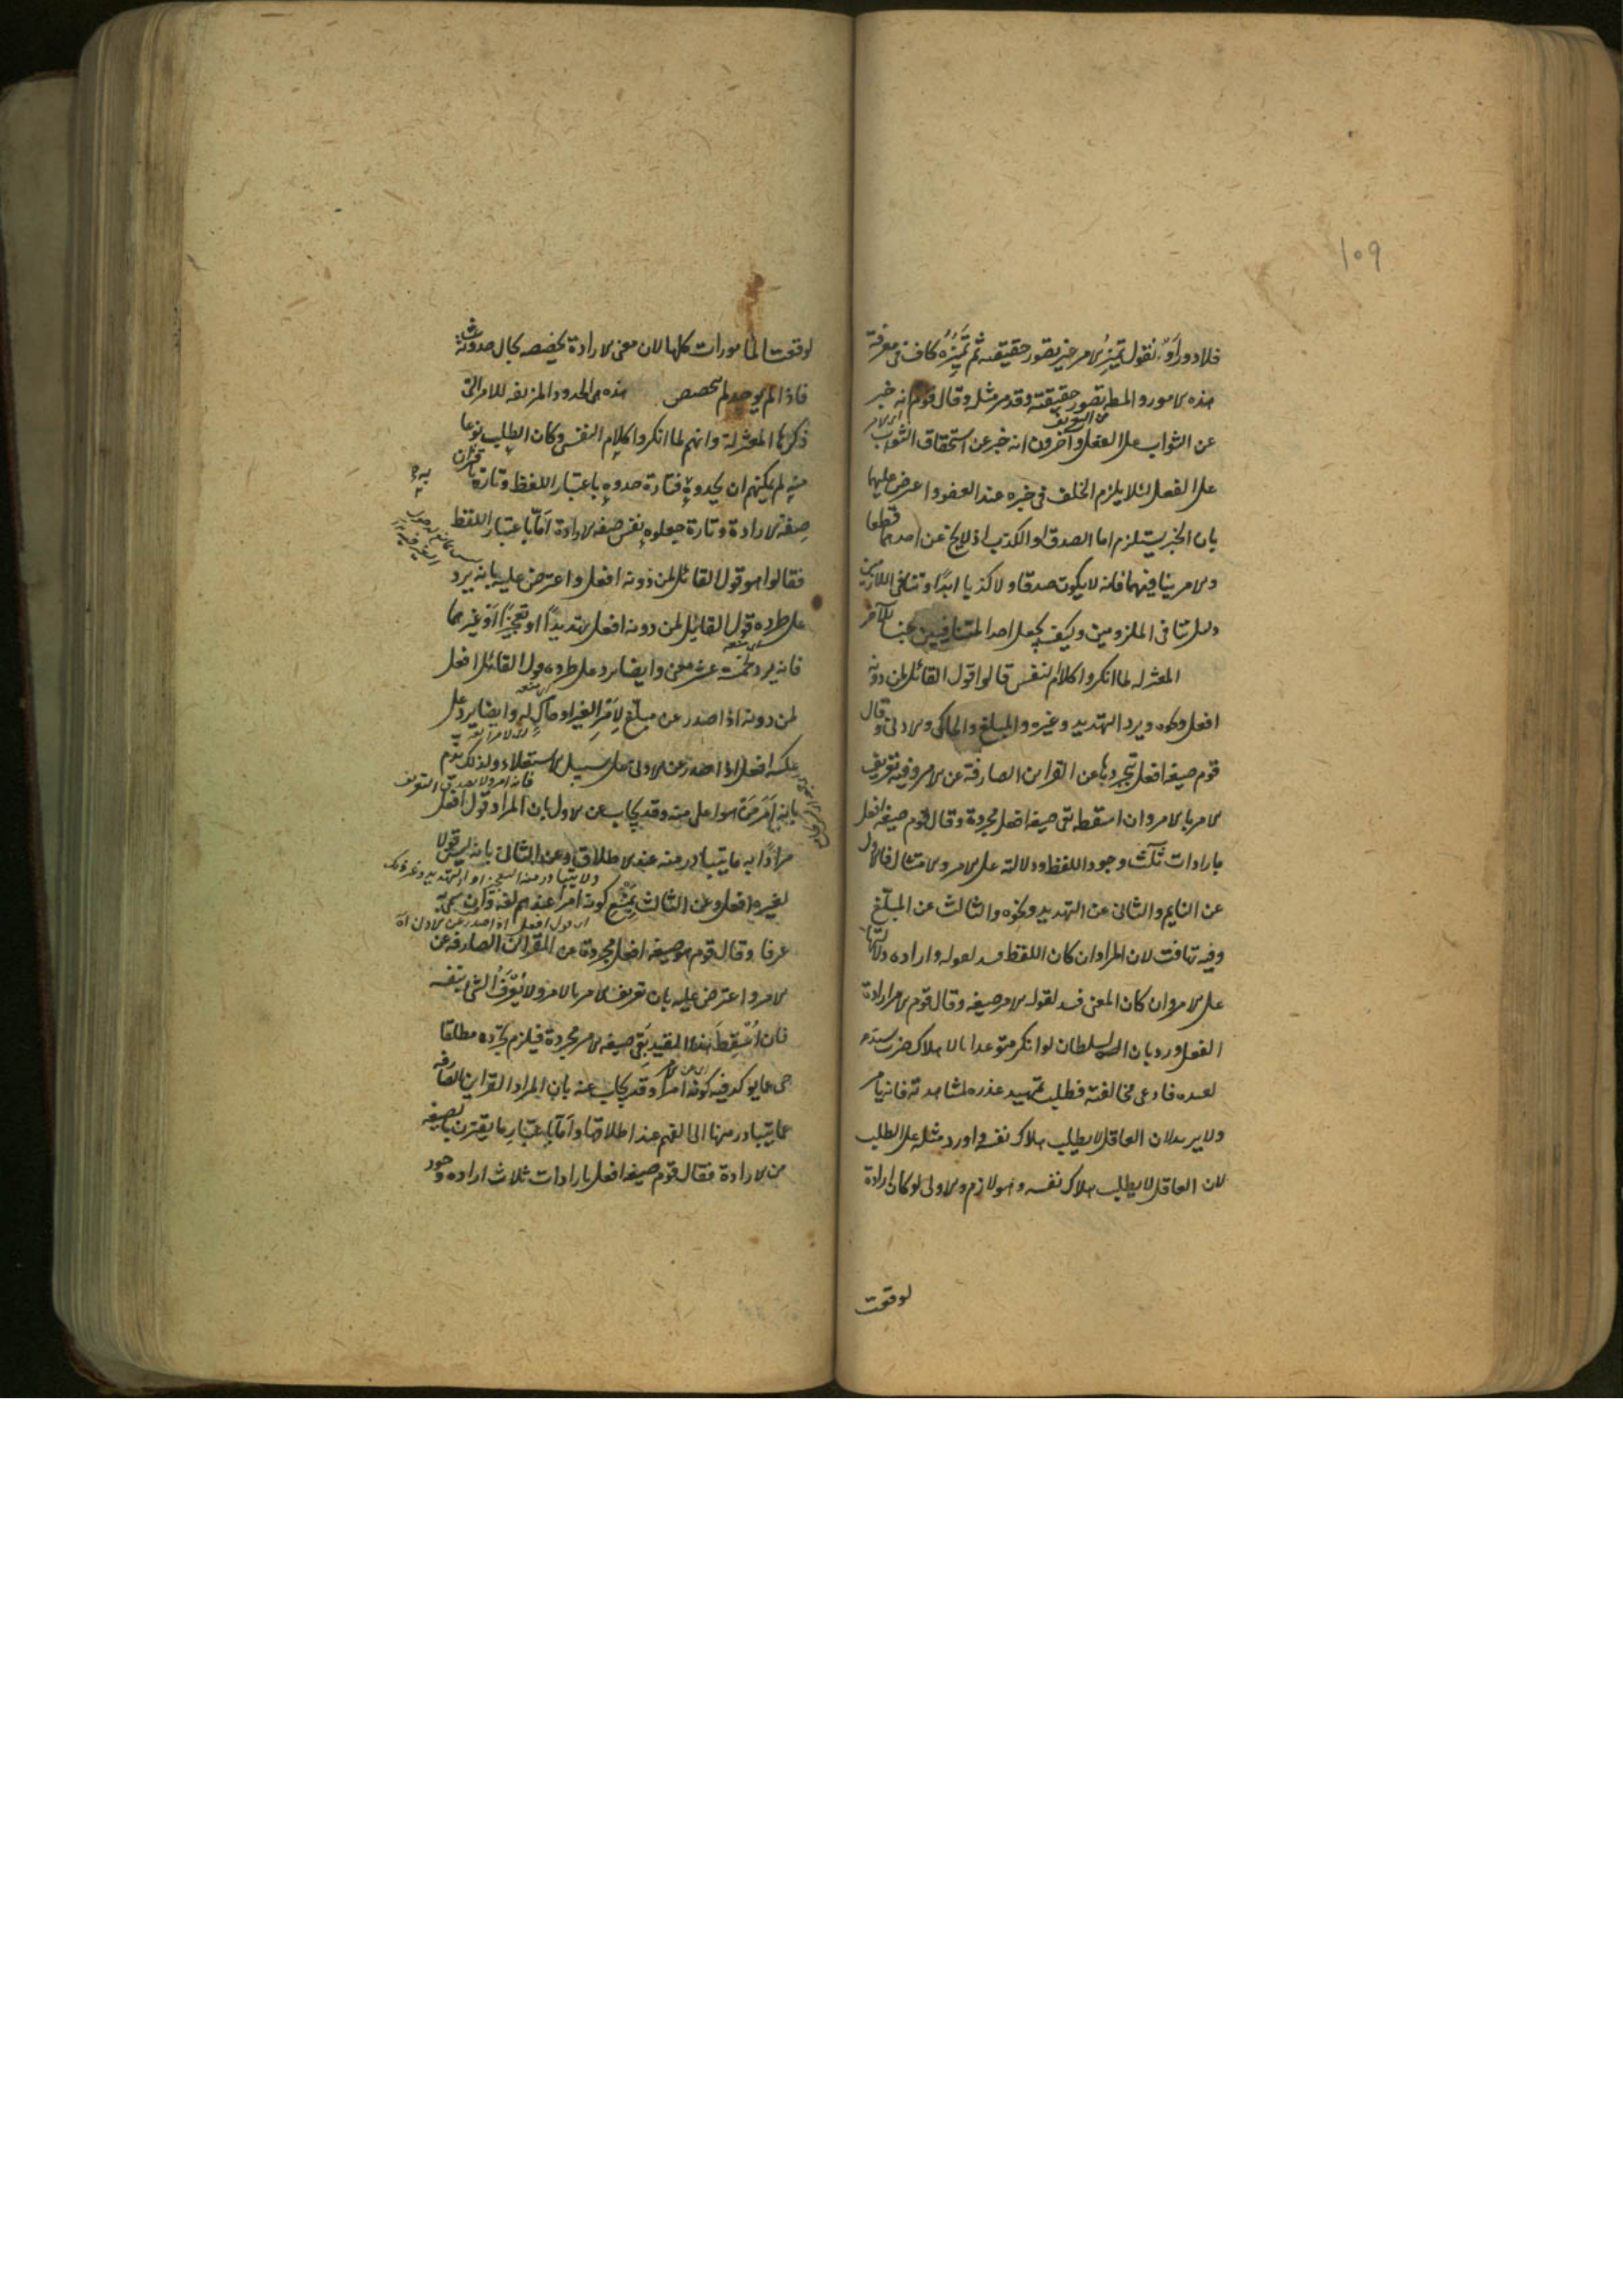 ١٠٩
فلا دور أو نقول تميز الامر غير تصور حقيقته ثم تميزه كاف في معرفة
هذه الامور والمط تصور حقيقته وقد مر مثله وقال قوم انه خبر
عن الثواب على الفعل وآخرون انه خبر عن استحقاق الثواب
على الفعل لئلا يلزم الخلف في خبره عند العفو واعترض عليهما
بان الخبر يستلزم اما الصدق او الكذب اذ لا يخ عن احدهما قطعا
والامر ينافيهما فانه لا يكون صدقا ولا كذبا ابدا وتنافي اللازمين
دليل تنافي الملزومين وكيف يجعل احد المتنافيين جنسا للآخر
المعتزله لما انكروا كلام النفس قالوا قول القائل لمن دونه
افعل ونحوه ويرد التهديد وغيره والمبلغ والحاكي والادنى وقال
قوم صيغه افعل بتجردها عن القراين الصارفة عن الامر وفيه تعريف
الامر بالامر وان اسقطه بقي صيغه افعل مجردة وقال قوم صيغه افعل
بارادات ثلث وجود اللفظ ودلالته على الامر والامتثال فالاول
عن النايم والثاني عن التهديد ونحوه والثالث عن المبلغ
وفيه تهافت لان المراد ان كان اللفظ فسد لقوله واراده دلالتها
على الامر وان كان المعنى فسد لقوله الامر صيغه وقال قوم الامر ارادة
الفعل ورد بان السلطان لو انكر متوعدا بالاهلاك ضرب سيد
لعبده فادعى مخالفته فطلب تمهيد عذره بمشاهدته فانه يامر
ولا يريد لان العاقل لا يطلب هلاك نفسه واورد مثله على الطلب
لان العاقل لا يطلب هلاك نفسه وهو لازم والاولى لو كان ارادة
لوقعت
لوقعت المامورات كلها لان معنى الارادة تخصيصه بحال حدوثه
فاذا لم يوجد لم يتخصص هذه هي الحدود المزيفه للامر التي
ذكرها المعتزلة وانهم لما انكروا كلام النفس وكان الطلب نوعا
منه لم يمكنهم ان يحدوه به فتارة حدوه باعتبار اللفظ وتارة باقتران
صفة الارادة وتارة جعلوه نفس صفه الارادة أما باعتبار اللفظ
فقالوا هو قول القائل لمن دونه افعل واعترض عليه بانه يرد
على طرده قول القايل لمن دونه افعل تهديدا او تعجيزا أو غيرهما
فانه يرد لخمسة عشر معنى وايضا يرد على طرده قول القائل افعل
لمن دونه اذا صدر عن مبلغ لأمر الغير او حاك له وايضا يرد على
عكسه افعل اذا صدر عن الادنى على سبيل الاستعلاء ولذلك يذم
فانه امر ولا يصدق التعريف
بانه أمر من هو اعلى منه وقد يجاب عن الاول بان المراد قول افعل
مرادا به ما يتبادر منه عند الاطلاق وعن الثاني بانه ليس قولا
ولا يتبادر منه التعجيز او التهديد وغير ذلك
لغيره افعل وعن الثالث بمنع كونه امرا عندهم لغة وان سمي به
اي قول افعل اذا صدر عن الادنى
عرفا وقال قوم هو صيغه افعل مجردة عن القراين الصارفه عن
الامر واعترض عليه بان تعريف الامر بالامر ولا يعرف الشئ بنفسه
فان اسقط هذا القيد بقي صيغه الامر مجردة فيلزم تجرده مطلقا
حتى عما يؤكد فيه كونه امرا وقد يجاب عنه بان المراد القراين الصارفه
عما يتبادر منها الى الفهم عند اطلاقها وأما باعتبار ما يقترن بالصيغه
من الارادة فقال قوم صيغه افعل بارادات ثلاث اراده وجود